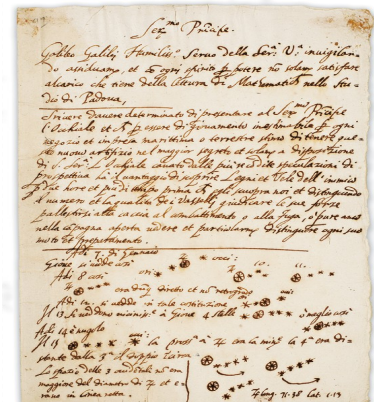 Ser.mo Principe.
Galileo Galilei Humiliss.o Servo della Ser.a V.a invigilan-
do assiduamente, et con ogni spirito per potere non solamente satisfare
al carico che tiene della lettura di Matematiche nello Stu-
dio di Padova,
Scrivere d'avere determinato di presentare al Ser.mo Principe
l'Occhiale et di essere di giovamento inestimabile per ogni
negozio et impresa marittima o terrestre stimo di tenere que-
sto nuovo artifizio nel maggior segreto et solamente a disposizione
di S. Ser.tà L'Occhiale cavato dalle più recondite speculazioni di
prospettiva ha il vantaggio di scoprire Legni et Vele dell'inimico
due hore et più di tempo prima che egli scuopra noi et distinguendo
il numero et la qualità dei Vasselli giudicare le sue forze
pallestirsi alla caccia al combattimento o alla fuga, o pure anco
nella campagna aperta vedere et particolarmente distinguere ogni suo
moto et preparamento.
Adì 7. di Gennaio
Giove si vede così
Adì 8 così
era dunque diretto et non retrogrado
Adì 12. si vedde in tale costituzione
Il 13 si veddono vicinissime a Giove 4 stelle
o meglio così
Adì 14 è nugolo
Il 15
la prossima a ♃ era la minore la 4a era di-
stante dalla 3a il doppio incirca
Lo spazio delle 3 occidentali non era
maggiore del diametro di ♃ et e-
rano in linea retta.
♃ long. 71.38 lat. 1.13